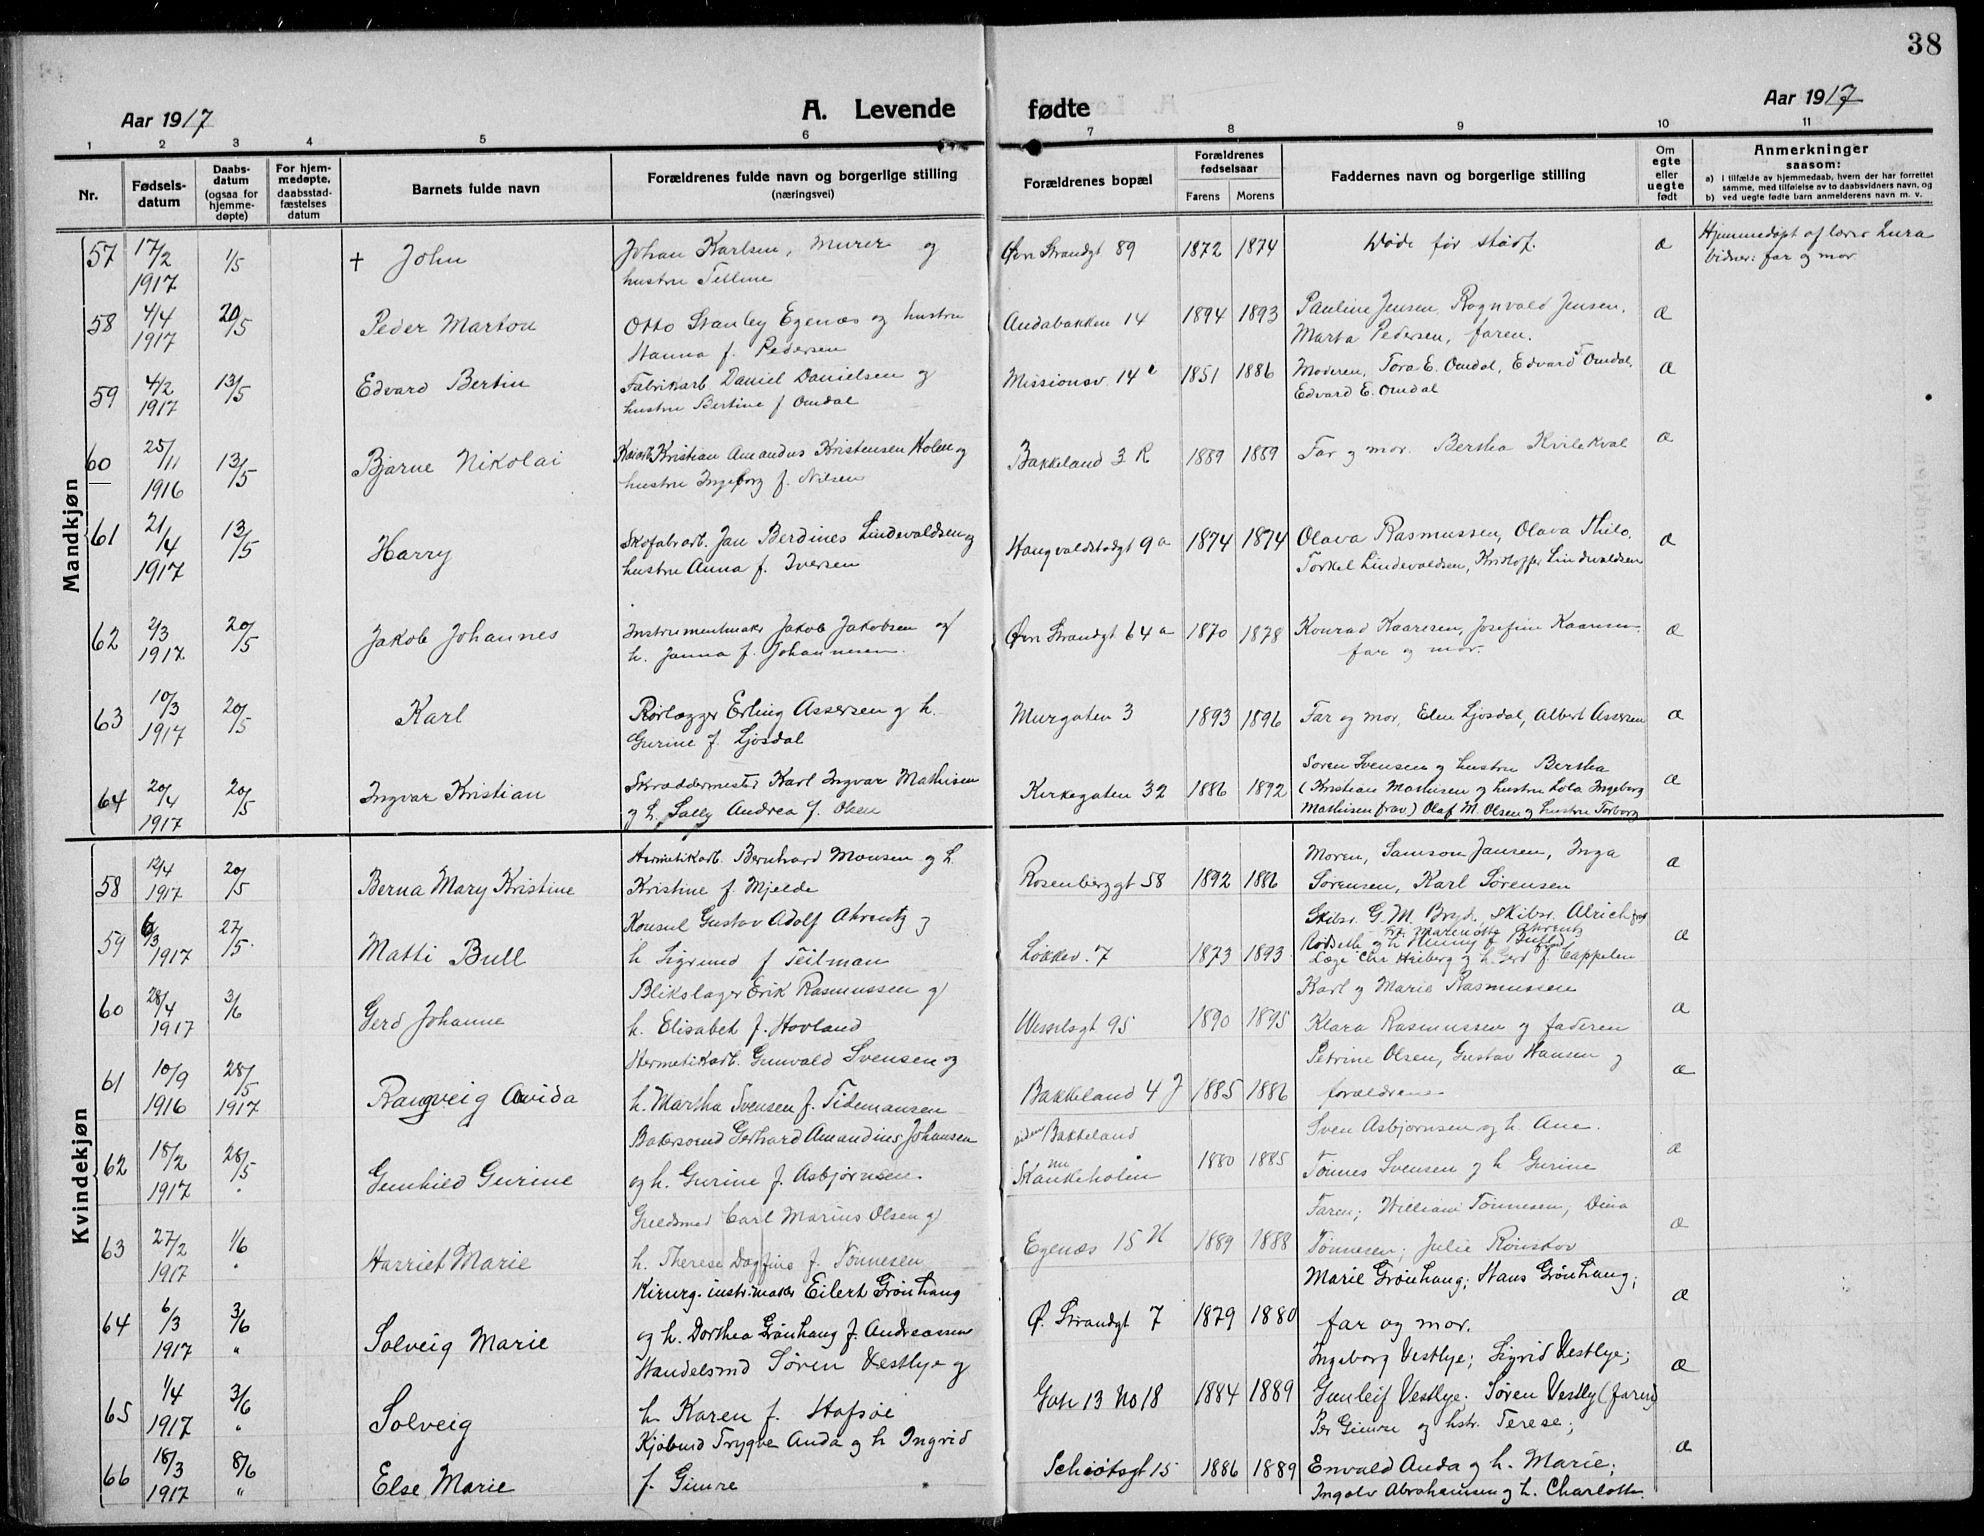 38
Aar 1917 A. Levende fødte Aar 1917
1 2 3 4 5 6 7 8 9 10 11
Nr.
Fødsels-
datum
Daabs-
datum
(ogsaa for
hjemme-
døpte)
For hjem-
medøpte,
daabsstad-
fæstelses
datum
Barnets fulde navn
Forældrenes fulde navn og borgerlige stilling
(næringsvei)
Forældrenes bopæl
Forældrenes
fødselsaar
Farens Morens
Faddernes navn og borgerlige stilling
Om
egte
eller
uegte
født
Anmerkninger
saasom:
a) i tilfælde av hjemmedaab, hvem der har forrettet
samme, med tilføielse av to daabsvidners navn, og
b) ved uegte fødte barn anmelderens navn m. v.
Mandkjøn
57 17/2 1917 1/5 + John
Johan Karlsen, Murer og
hustru Telline
Øvn Strandgt 89 1872 1874 Døde før stadf. æ
Hjemmedøpt af lærer Lura
Vidner: far og mor
58 4/4 1917 20/5 Peder Marton
Otto Stanley Egenæs og hustru
Hanna f. Pedersen
Andabakken 14 1894 1893
Pauline Jensen, Ragnvald Jensen,
Marta Pedersen, faren. æ
59 4/2 1917 13/5 Edvard Bertin
Fabrikarb. Daniel Danielsen og
hustru Bertine f Omdal
Missionsv. 14e 1851 1886
Moderen, Tora E. Omdal, Edvard T Omdal,
Edvard E. Omdal æ
60 25/11 1916 13/5 Bjarne Nikolai
Kristian Amandus Kristensen Holen og
hustru Ingeborg f. Nilsen
Bakkeland 3 R 1889 1889
Far og mor. Bertha Kvilekval æ
61 21/4 1917 13/5 Harry
Skofabarb. Jan Berdines Lindevaldsen og
hustru Anna f. Iversen
Haugvaldstadgt 9a 1874 1874
Olava Rasmussen, Olava Thilo,
Torkel Lindevaldsen, Kristoffer Lindevaldsen æ
62 2/3 1917 20/5 Jakob Johannes
Instrumentmaker Jakob Jakobsen og
h. Janna f. Johannesen.
Øvn Strandgt 64a 1870 1878
Konrad Kaaresen, Josefine Kaaresen,
far og mor. æ
63 10/3 1917 20/5 Karl
Rørlægger Erling Assersen og h.
Gurine f. Ljosdal
Murgaten 3 1893 1896
Far og mor, Elen Ljosdal, Albert Assersen æ
64 20/4 1917 20/5 Ingvar Kristian
Skræddermester Karl Ingvar Mathisen
og h. Sally Andrea f. Olsen
Kirkegaten 32 1886 1892
Soren Svensen og hustru Bertha
(Kristian Mathisen og hustru Lola Ingeborg
Mathisen frav) Olaf M. Olsen og hustru Torborg æ
Kvindekjøn
58 12/4 1917 20/5 Berna Mary Kristine
Hermetikarb. Bernhard Monsen og h.
Kristine f. Mjelde
Rosenberggt 58 1892 1886
Moren, Samson Jansen, Inga
Sørensen, Karl Sørensen æ
59 6/3 1917 27/5. Matti Bull
Konsul Gustav Adolf Ahrentz og
h Sigrund f Teilman
Løkkev. 7 1873 1893
Skibsr. G. M. Bryd. Skibsr. Alrich
Rødseth og h Henny f Bull
Læge Chr Heiberg og h. Gerd f Cappelen æ
60 28/4 1917 3/6 Gerd Johanne
Blikslager Erik Rasmussen og
h. Elisabet f. Hovland
Wesselsgt 95 1890 1895
Karl og Marie Rasmussen
Klara Rasmussen og faderen æ
61 10/9 1916 28/5 1917 Rangveig Ovida
Hermetikarb. Gunvald Svensen og
h. Martha Svensen f. Tidemansen
Bakkeland 4 J 1885 1886
Petrine Olsen, Gustav Hansen og
forældrene æ
62 18/2 1917 28/5 " Gunhild Gurine
Bakersvend Gerhard Amandius Johansen
og h. Gurine f. Asbjørnsen.
Bakkeland
nu
Skankeholen 1880 1885
Sven Asbjørnsen og h. Ane.
Tønnes Svensen og h Gurine æ
63 27/2 1917 1/6 " Harriet Marie
Guldsmed Carl Marius Olsen og
h. Therese Dagfine f. Tønnesen
Egenæs 15 H 1889 1888
Faren; William Tønnesen; Dina
Tønnesen; Julie Rønstov æ
64 6/3 1917 3/6 " Solveig Marie
Kirurg. instr. maker Eilert Grønhaug
og h. Dorthea Grønhaug f. Andreassen
Ø. Strandgt 7 1879 1880
Marie Grønhaug; Hans Grønhaug;
far og mor. æ
65 1/4 1917 3/6 " Solveig
Handelsmd Søren Vestlye og
h Karen f. Hafsøe
Gate 13 No 18 1884 1889
Ingeborg Vestlye; Sigrid Vestlye;
Gunleif Vestlye; Søren Vestly (faren) æ
66 18/3 1917 8/6 " Else Marie
Kjøbmd Trygve Anda og h Ingrid
f. Gimre
Schiøtsgt 15 1886 1889
Per Gimre og hstr. Terese;
Envald Anda og h. Marie;
Ingolv Abrahamsen og h. Charlotte. æ